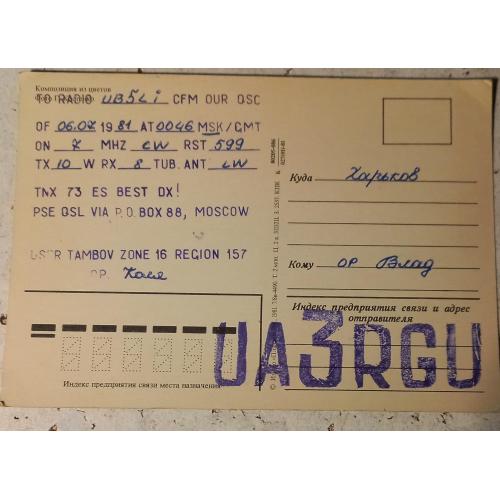 Композиция из цветов
TO RADIO UB5Li CFM OUR QSC
OF 06.07 1981 AT 0046 MSK/GMT
ON 7 MHZ CW RST 599
TX 10 W RX 8 TUB. ANT LW
TNX 73 ES BEST DX!
PSE QSL VIA P.O. BOX 88, MOSCOW
USSR TAMBOV ZONE 16 REGION 157
OP. Коля
Куда Харьков
Кому ОР Влад
Индекс предприятия связи и адрес
отправителя
Индекс предприятия связи места назначения
UA3RGU